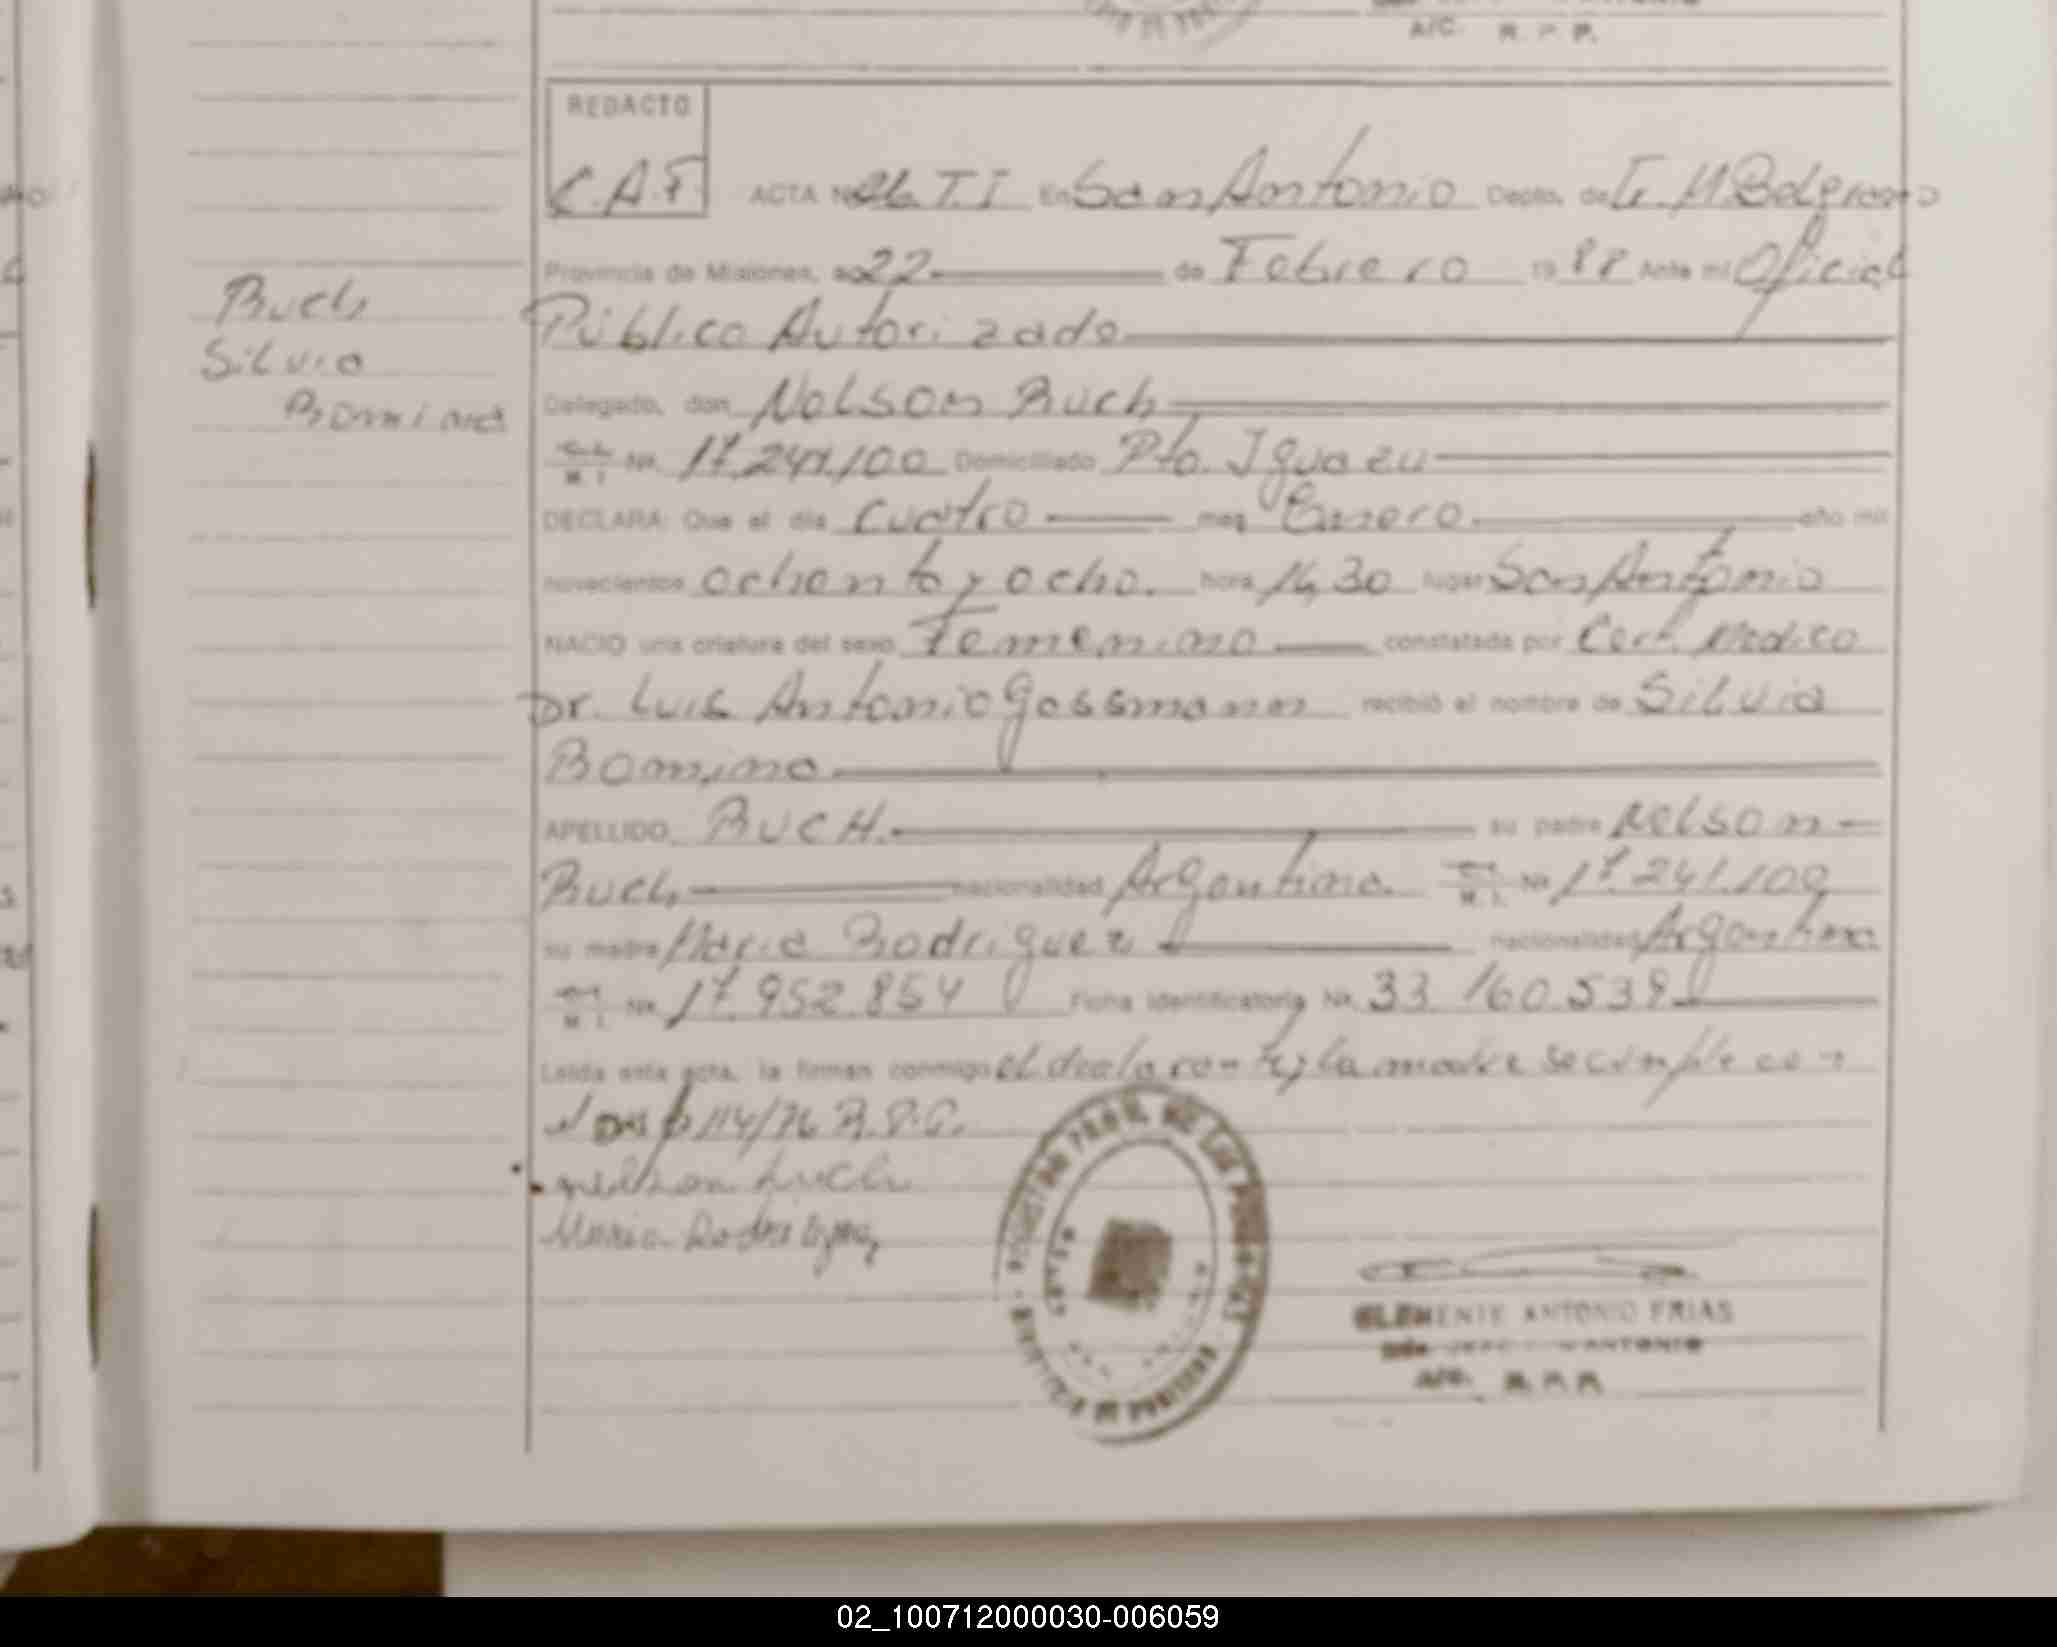 A/C. R. P. P.
REDACTO
C.A.F. ACTA Nº T.I En San Antonio Depto. de G. M. Belgrano
Provincia de Misiones, a 22 de Febrero 1988 Ante mi Oficial
Público Autorizado
Delegado, don Nelson Buch
M. I. Nº 17.241.100 Domiciliado Pto. Iguazu
DECLARA: Que el día cuatro mes Enero año mil
novecientos ochenta y ocho. hora 14,30 lugar San Antonio
NACIO una criatura del sexo Femenino constatada por Cert. Medico
Dr. Luis Antonio Gossmann recibió el nombre de Silvia
Romina
APELLIDO BUCH. su padre Nelson
Buch nacionalidad Argentina. M. I. Nº 17.241.100
su madre Maria Rodriguez nacionalidad Argentina
M. I. Nº 17.952.854 Ficha identificatoria Nº 33.160.539
Leída esta acta, la firman conmigo el declarante y la madre se cumple con
114/76 R.P.P.
Buch
Maria Rodriguez
Buch
Silvia
Romina
REGISTRO PROV. DE LAS PERSONAS
PROVINCIA DE MISIONES
CLEMENTE ANTONIO FRIAS
ANTONIO
A/C. R. P. P.
02_100712000030-006059